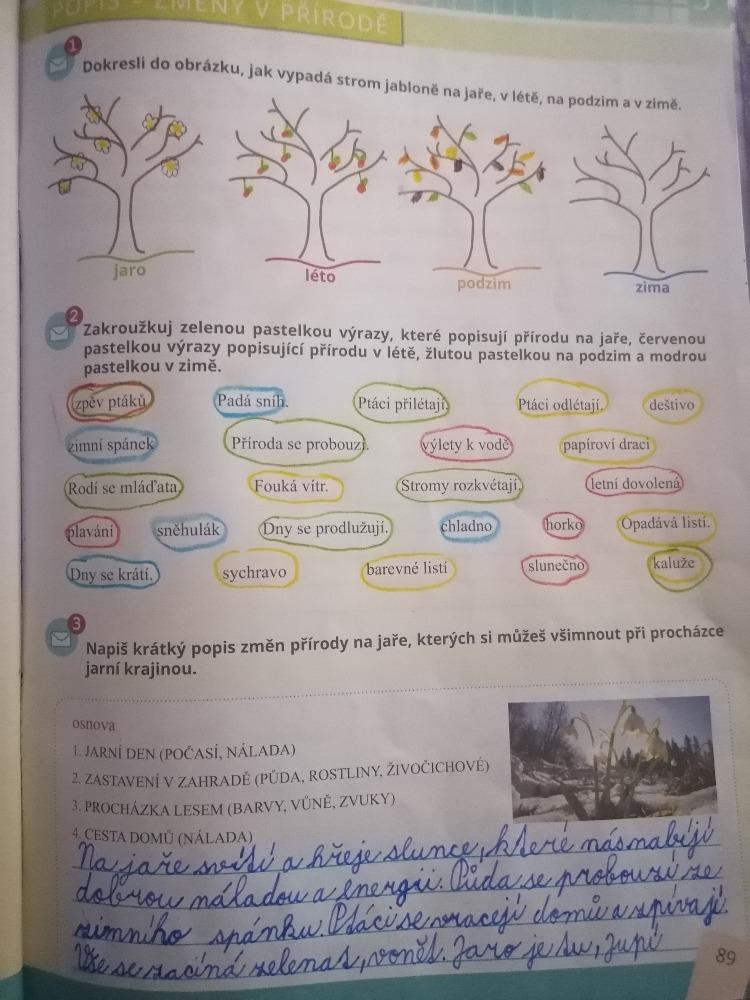 POPIS – ZMĚNY V PŘÍRODĚ
1
Dokresli do obrázku, jak vypadá strom jabloně na jaře, v létě, na podzim a v zimě.
jaro léto podzim zima
2
Zakroužkuj zelenou pastelkou výrazy, které popisují přírodu na jaře, červenou
pastelkou výrazy popisující přírodu v létě, žlutou pastelkou na podzim a modrou
pastelkou v zimě.
zpěv ptáků Padá sníh. Ptáci přilétají. Ptáci odlétají. deštivo
zimní spánek Příroda se probouzí. výlety k vodě papíroví draci
Rodí se mláďata. Fouká vítr. Stromy rozkvétají. letní dovolená
plavání sněhulák Dny se prodlužují. chladno horko Opadává listí.
Dny se krátí. sychravo barevné listí slunečno kaluže
3
Napiš krátký popis změn přírody na jaře, kterých si můžeš všimnout při procházce
jarní krajinou.
osnova
1. JARNÍ DEN (POČASÍ, NÁLADA)
2. ZASTAVENÍ V ZAHRADĚ (PŮDA, ROSTLINY, ŽIVOČICHOVÉ)
3. PROCHÁZKA LESEM (BARVY, VŮNĚ, ZVUKY)
4. CESTA DOMŮ (NÁLADA)
Na jaře svítí a hřeje slunce, které nás nabíjí
dobrou náladou a energií. Půda se probouzí ze
zimního spánku. Ptáci se vracejí domů a zpívají.
Vše se začíná zelenat, vonět. Jaro je tu, jupí
89